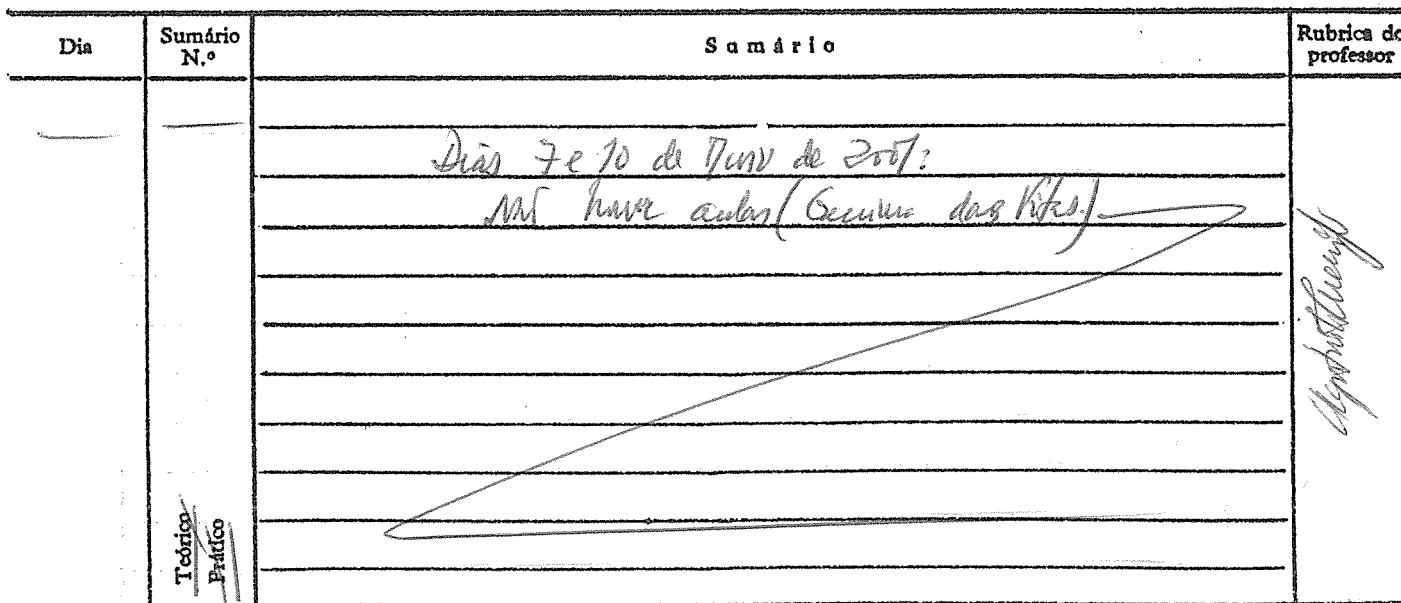 Dia
Sumário N.º
Sumário
Rubrica do professor
Dias 7 e 10 de de 2001:
Não houve aulas ( das Fitas.)
Teórico
Prático